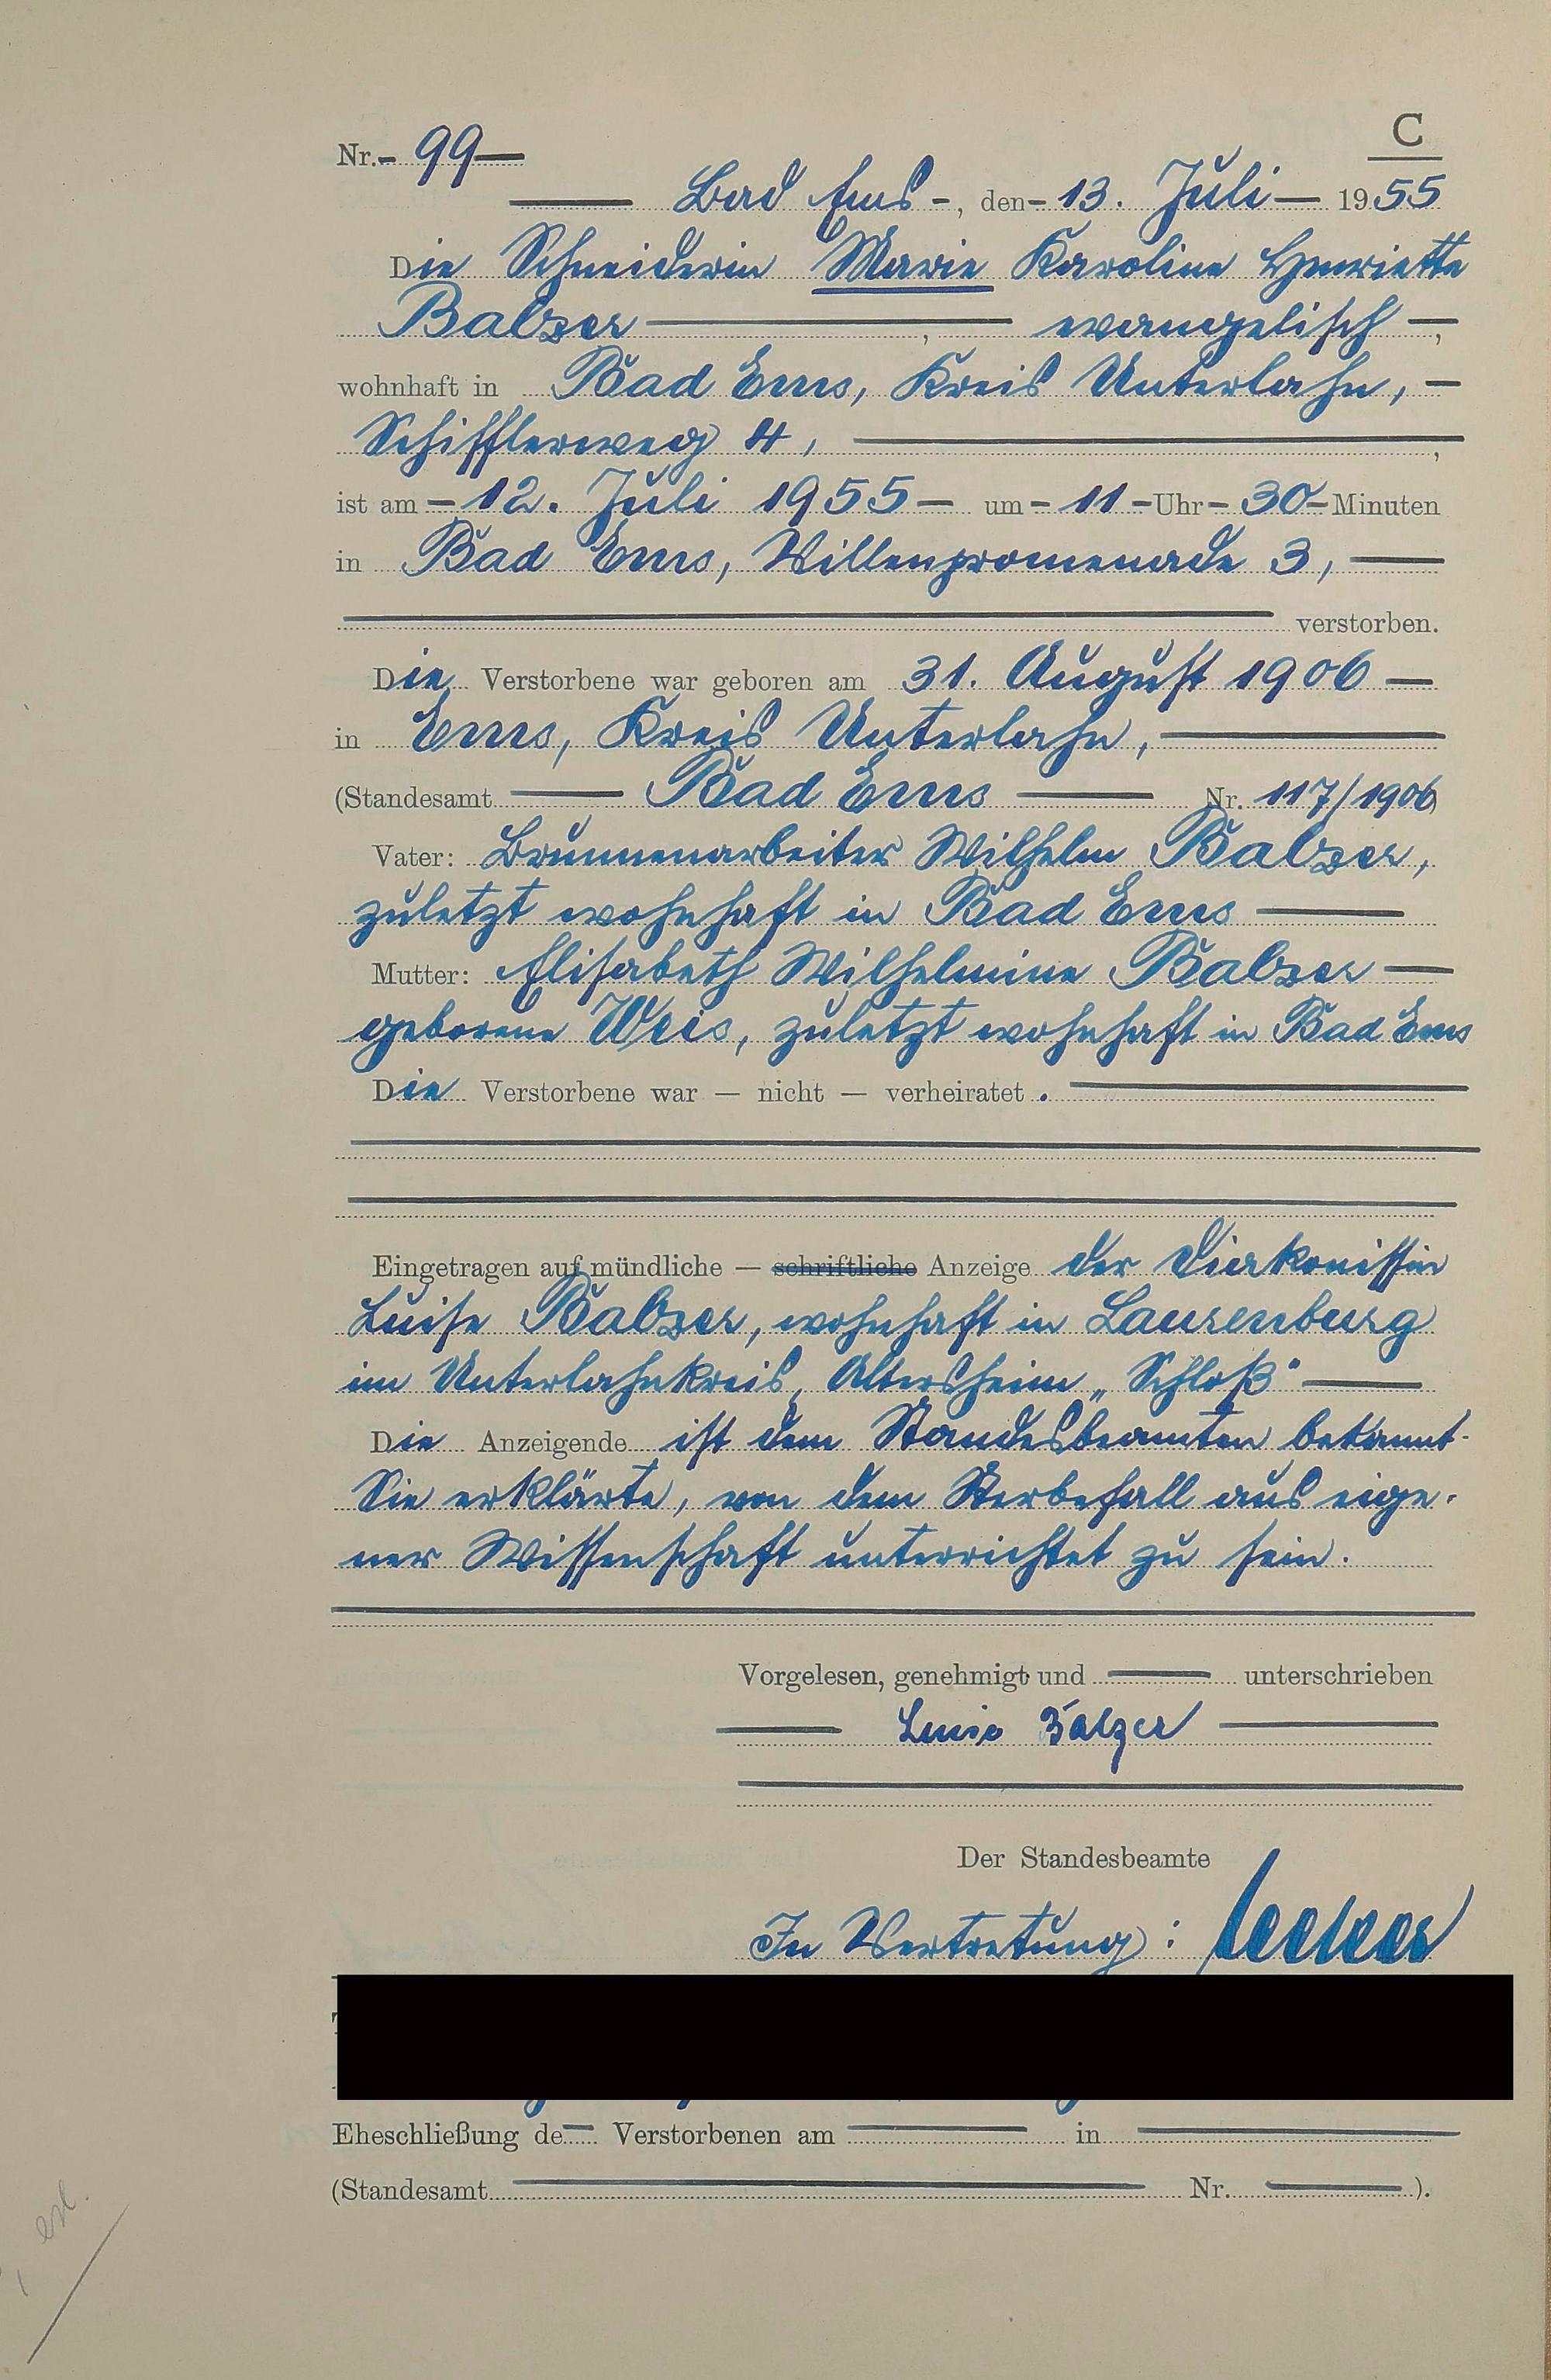 C
Nr. 99
Bad Ems, den 13. Juli 1955
Die Schneiderin Marie Karoline Henriette
Balzer, evangelisch,
wohnhaft in Bad Ems, Kreis Unterlahn,
Schifflerweg 4,
ist am 12. Juli 1955 um 11 Uhr 30 Minuten
in Bad Ems, Villenpromenade 3,
verstorben.
Die Verstorbene war geboren am 31. August 1906
in Ems, Kreis Unterlahn,
(Standesamt Bad Ems Nr. 117/1906)
Vater: Brunnenarbeiter Wilhelm Balzer,
zuletzt wohnhaft in Bad Ems
Mutter: Elisabeth Wilhelmine Balzer
geborene Weis, zuletzt wohnhaft in Bad Ems
Die Verstorbene war — nicht — verheiratet.
Eingetragen auf mündliche — schriftliche Anzeige der Diakonissin
Luise Balzer, wohnhaft in Laurenburg
im Unterlahnkreis, Altersheim „Schloß"
Die Anzeigende ist dem Standesbeamten bekannt.
Sie erklärte, von dem Sterbefall aus eige-
ner Wissenschaft unterrichtet zu sein.
Vorgelesen, genehmigt und unterschrieben
Luise Balzer
Der Standesbeamte
In Vertretung:
Eheschließung de Verstorbenen am in
(Standesamt Nr. ).
erl.